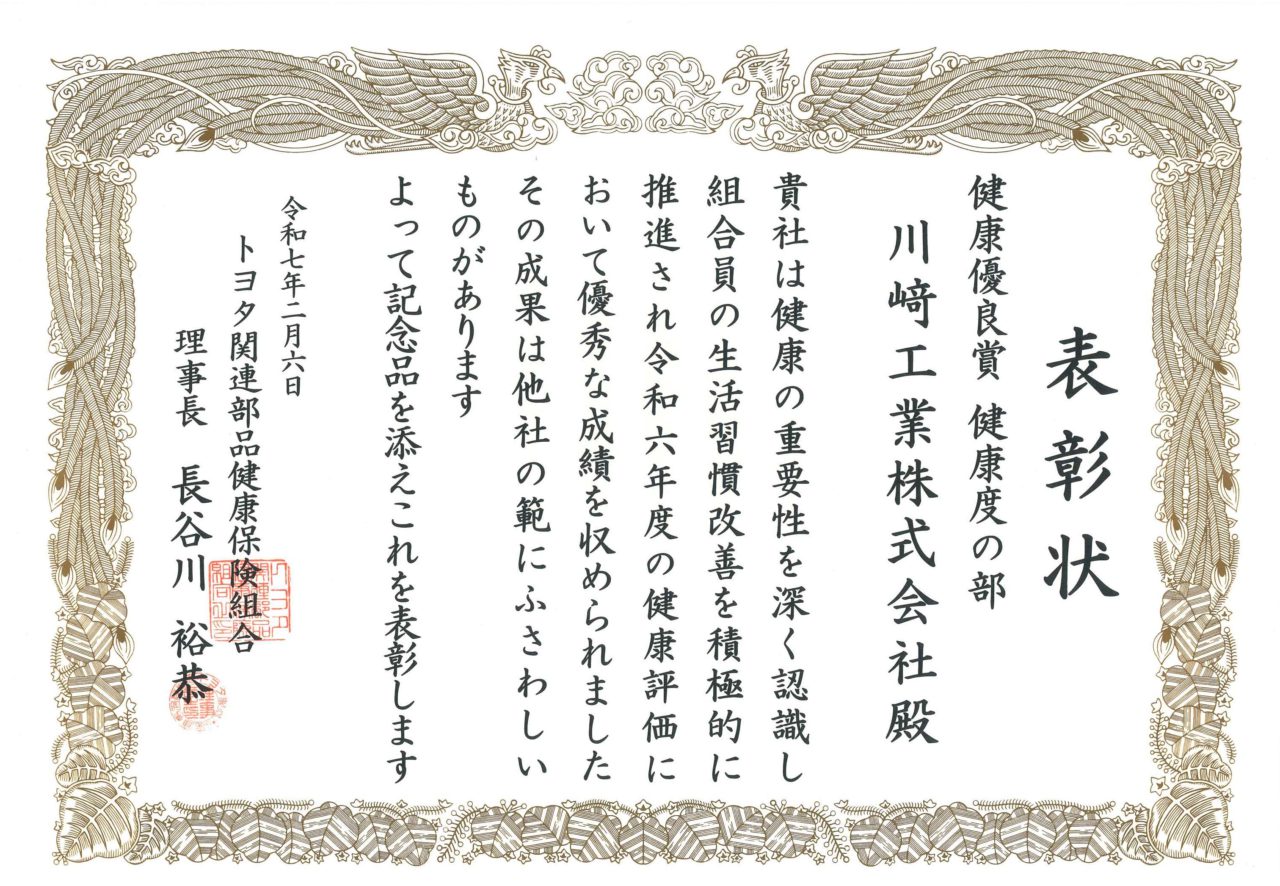 表彰状
健康優良賞 健康度の部
川﨑工業株式会社殿
貴社は健康の重要性を深く認識し
組合員の生活習慣改善を積極的に
推進され令和六年度の健康評価に
おいて優秀な成績を収められました
その成果は他社の範にふさわしい
ものがあります
よって記念品を添えこれを表彰します
令和七年二月六日
トヨタ関連部品健康保険組合
理事長 長谷川 裕恭